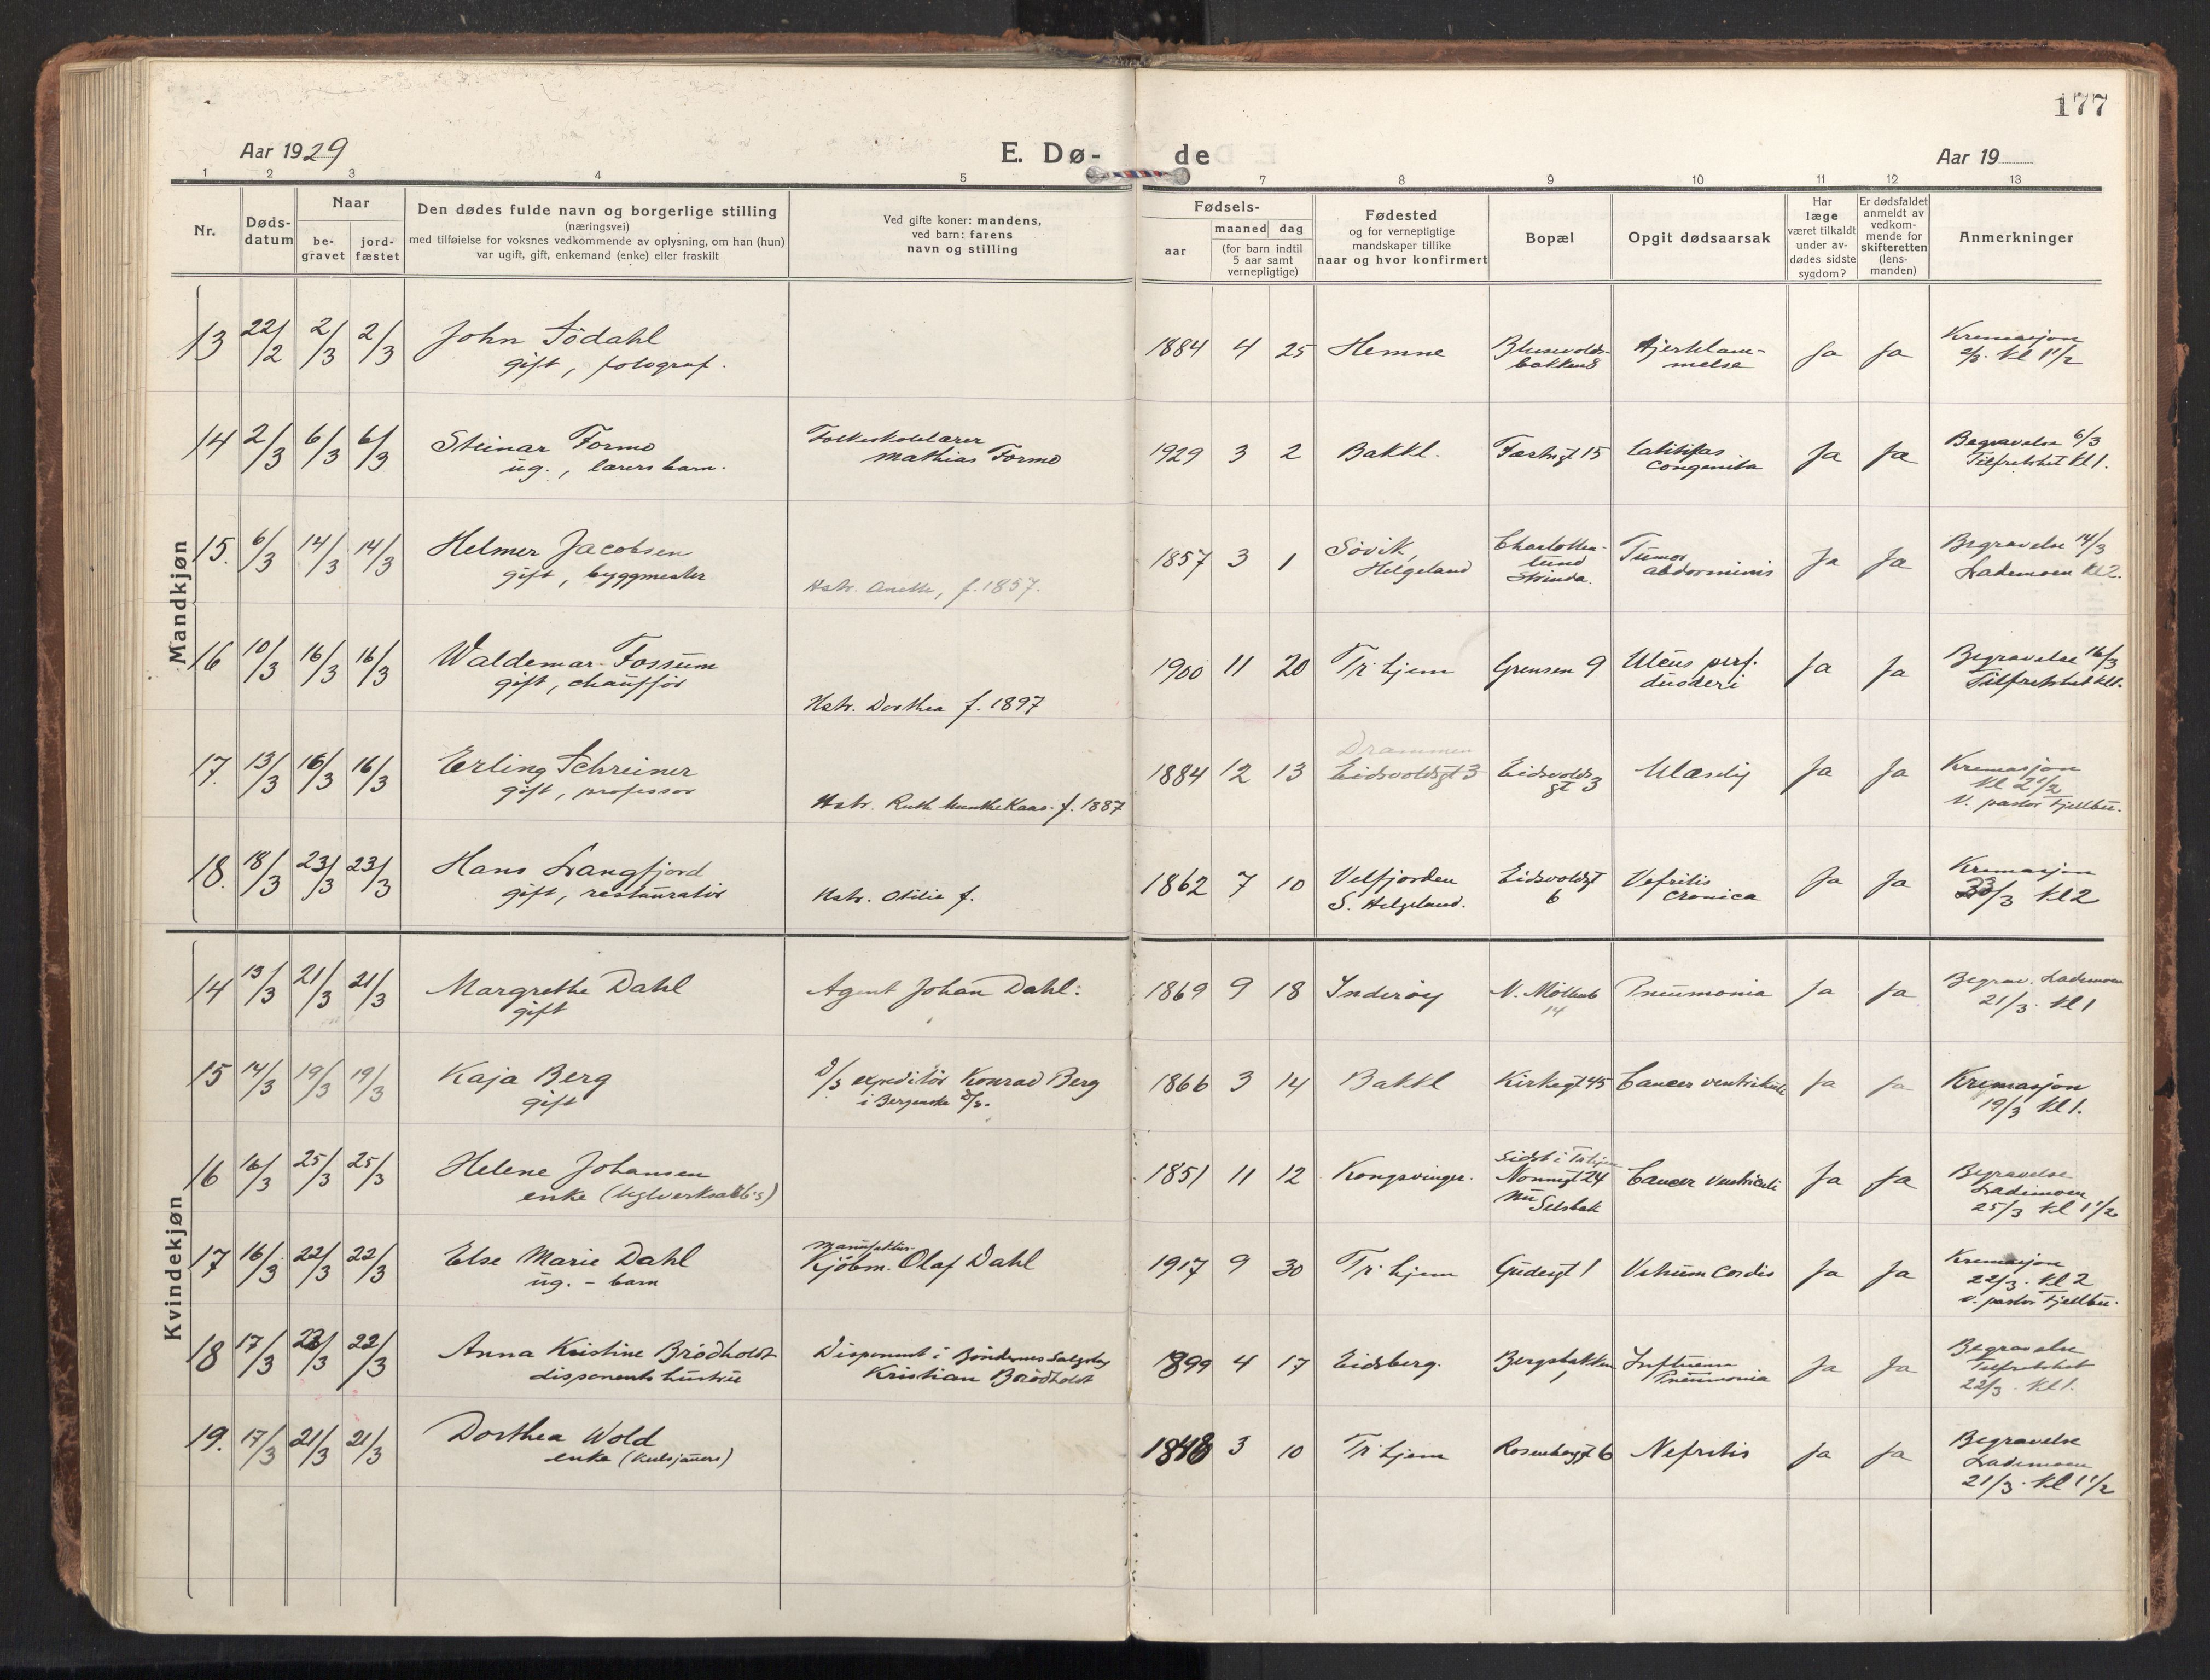 177
Aar 1929
E. Dø-
de
Aar 19
1 2 3 4 5 7 8 9 10 11 12 13
Nr.
Døds-
datum
Naar
be-
gravet
jord-
fæstet
Den dødes fulde navn og borgerlige stilling
(næringsvei)
med tilføielse for voksnes vedkommende av oplysning, om han (hun)
var ugift, gift, enkemand (enke) eller fraskilt
Ved gifte koner: mandens,
ved barn: farens
navn og stilling
Fødsels-
aar
maaned dag
(for barn indtil
5 aar samt
vernepligtige)
Fødested
og for vernepligtige
mandskaper tillike
naar og hvor konfirmert
Bopæl
Opgit dødsaarsak
Har
læge
været tilkaldt
under av-
dødes sidste
sygdom?
Er dødsfaldet
anmeldt av
vedkom-
mende for
skifteretten
(lens-
manden)
Anmerkninger
Mandkjøn
13 22/2 2/3 2/3 John Södahl
gift, fotograf.
1884 4 25 Hemne
bakken 8
Hjerklam-
melse
Ja Ja
Kremasjon
2/3. kl 1 1/2
14 2/3 6/3 6/3 Steinar Formo
ug., lærers barn.
Folkeskolelærer
Mathias Formo
1929 3 2 Bakkl.
congenita
Ja Ja
Begravelse 6/3
Tilfredshet kl 1.
15. 6/3 14/3 14/3 Helmer Jacobsen
gift, byggmester
Hstr. Anette, f. 1857.
1857 3 1 Søvik,
Helgeland
Charlotten-
lund
Strinda.
Tumor
abdominis
Ja Ja
Begravelse 14/3
Lademoen kl 2.
16 10/3 16/3 16/3 Waldemar Fossum
gift, chauffør
Hstr. Dorthea f. 1897
1900 11 20 Tr.hjem Grensen 9
Ulcus perf.
duoderi
Ja Ja
Begravelse 16/3
Tilfredshet kl 1.
17. 13/3 16/3 16/3 Erling Schreiner
gift, professor
Hstr. Ruth Munthe Kaas. f. 1887
1884 12 13
Drammen
Eidsvoldsgt 3
Eidsvolds
gt 3
Ulæselig
Ja Ja
Kremasjon
kl 2 1/2
v. pastor Fjellbu.
18. 18/3 23/3 23/3 Hans Langfjord
gift, restauratør
Hstr. Otilie f.
1862 7 10 Velfjorden
S. Helgeland.
Eidsvoldsgt
6
Nefritis
cronica
Ja Ja
Kremasjon
23/3 kl 2
Kvindekjøn
14 13/3 21/3 21/3 Margrethe Dahl
gift
Agent Johan Dahl.
1869 9 18 Inderøy
N. Møllenb
14
Pneumonia
Ja Ja
Begrav. Lademoen
21/3. kl 1
15 14/3 19/3 19/3 Kaja Berg
gift
D/S expeditør Konrad Berg
i Bergenske D/S.
1866 3 14 Bakkl Kirkegt 45 Cancer ventrikuli
Ja Ja
Kremasjon
19/3 kl 1.
16 16/3 25/3 25/3 Helene Johansen
enke (Uglverksarb's)
1851 11 12 Kongsvinger.
Sidst i Tr.hjem
Nonnegt 24
nu Selsbak
Cancer ventriculi
Ja Ja
Begravelse
Lademoen
25/3 kl 1 1/2
17 16/3 22/3 22/3 Else Marie Dahl
ug. - barn
manufaktur-
Kjøbm. Olaf Dahl
1917 9 30 Tr.hjem Gudesgt 1 Vitium cordis
Ja Ja
Kremasjon
22/3. kl 2
v. pastor Fjellbu.
18 17/3 22/3 22/3 Anna Kristine Brødholdt
disponents hustru
Disponent i Bøndernes Salgslag
Kristian Brødholdt
1899 4 17 Eidsberg.
Bergsbakken
1
Influensa
Pneumonia
Ja Ja
Begravelse
Tilfredshet
22/3. kl 1.
19. 17/3 21/3 21/3 Dorthea Wold
enke (kulsjauers)
1848 3 10 Tr.hjem Rosenborggt 6 Nefritis
Ja Ja
Begravelse
Lademoen
21/3. kl 1 1/2